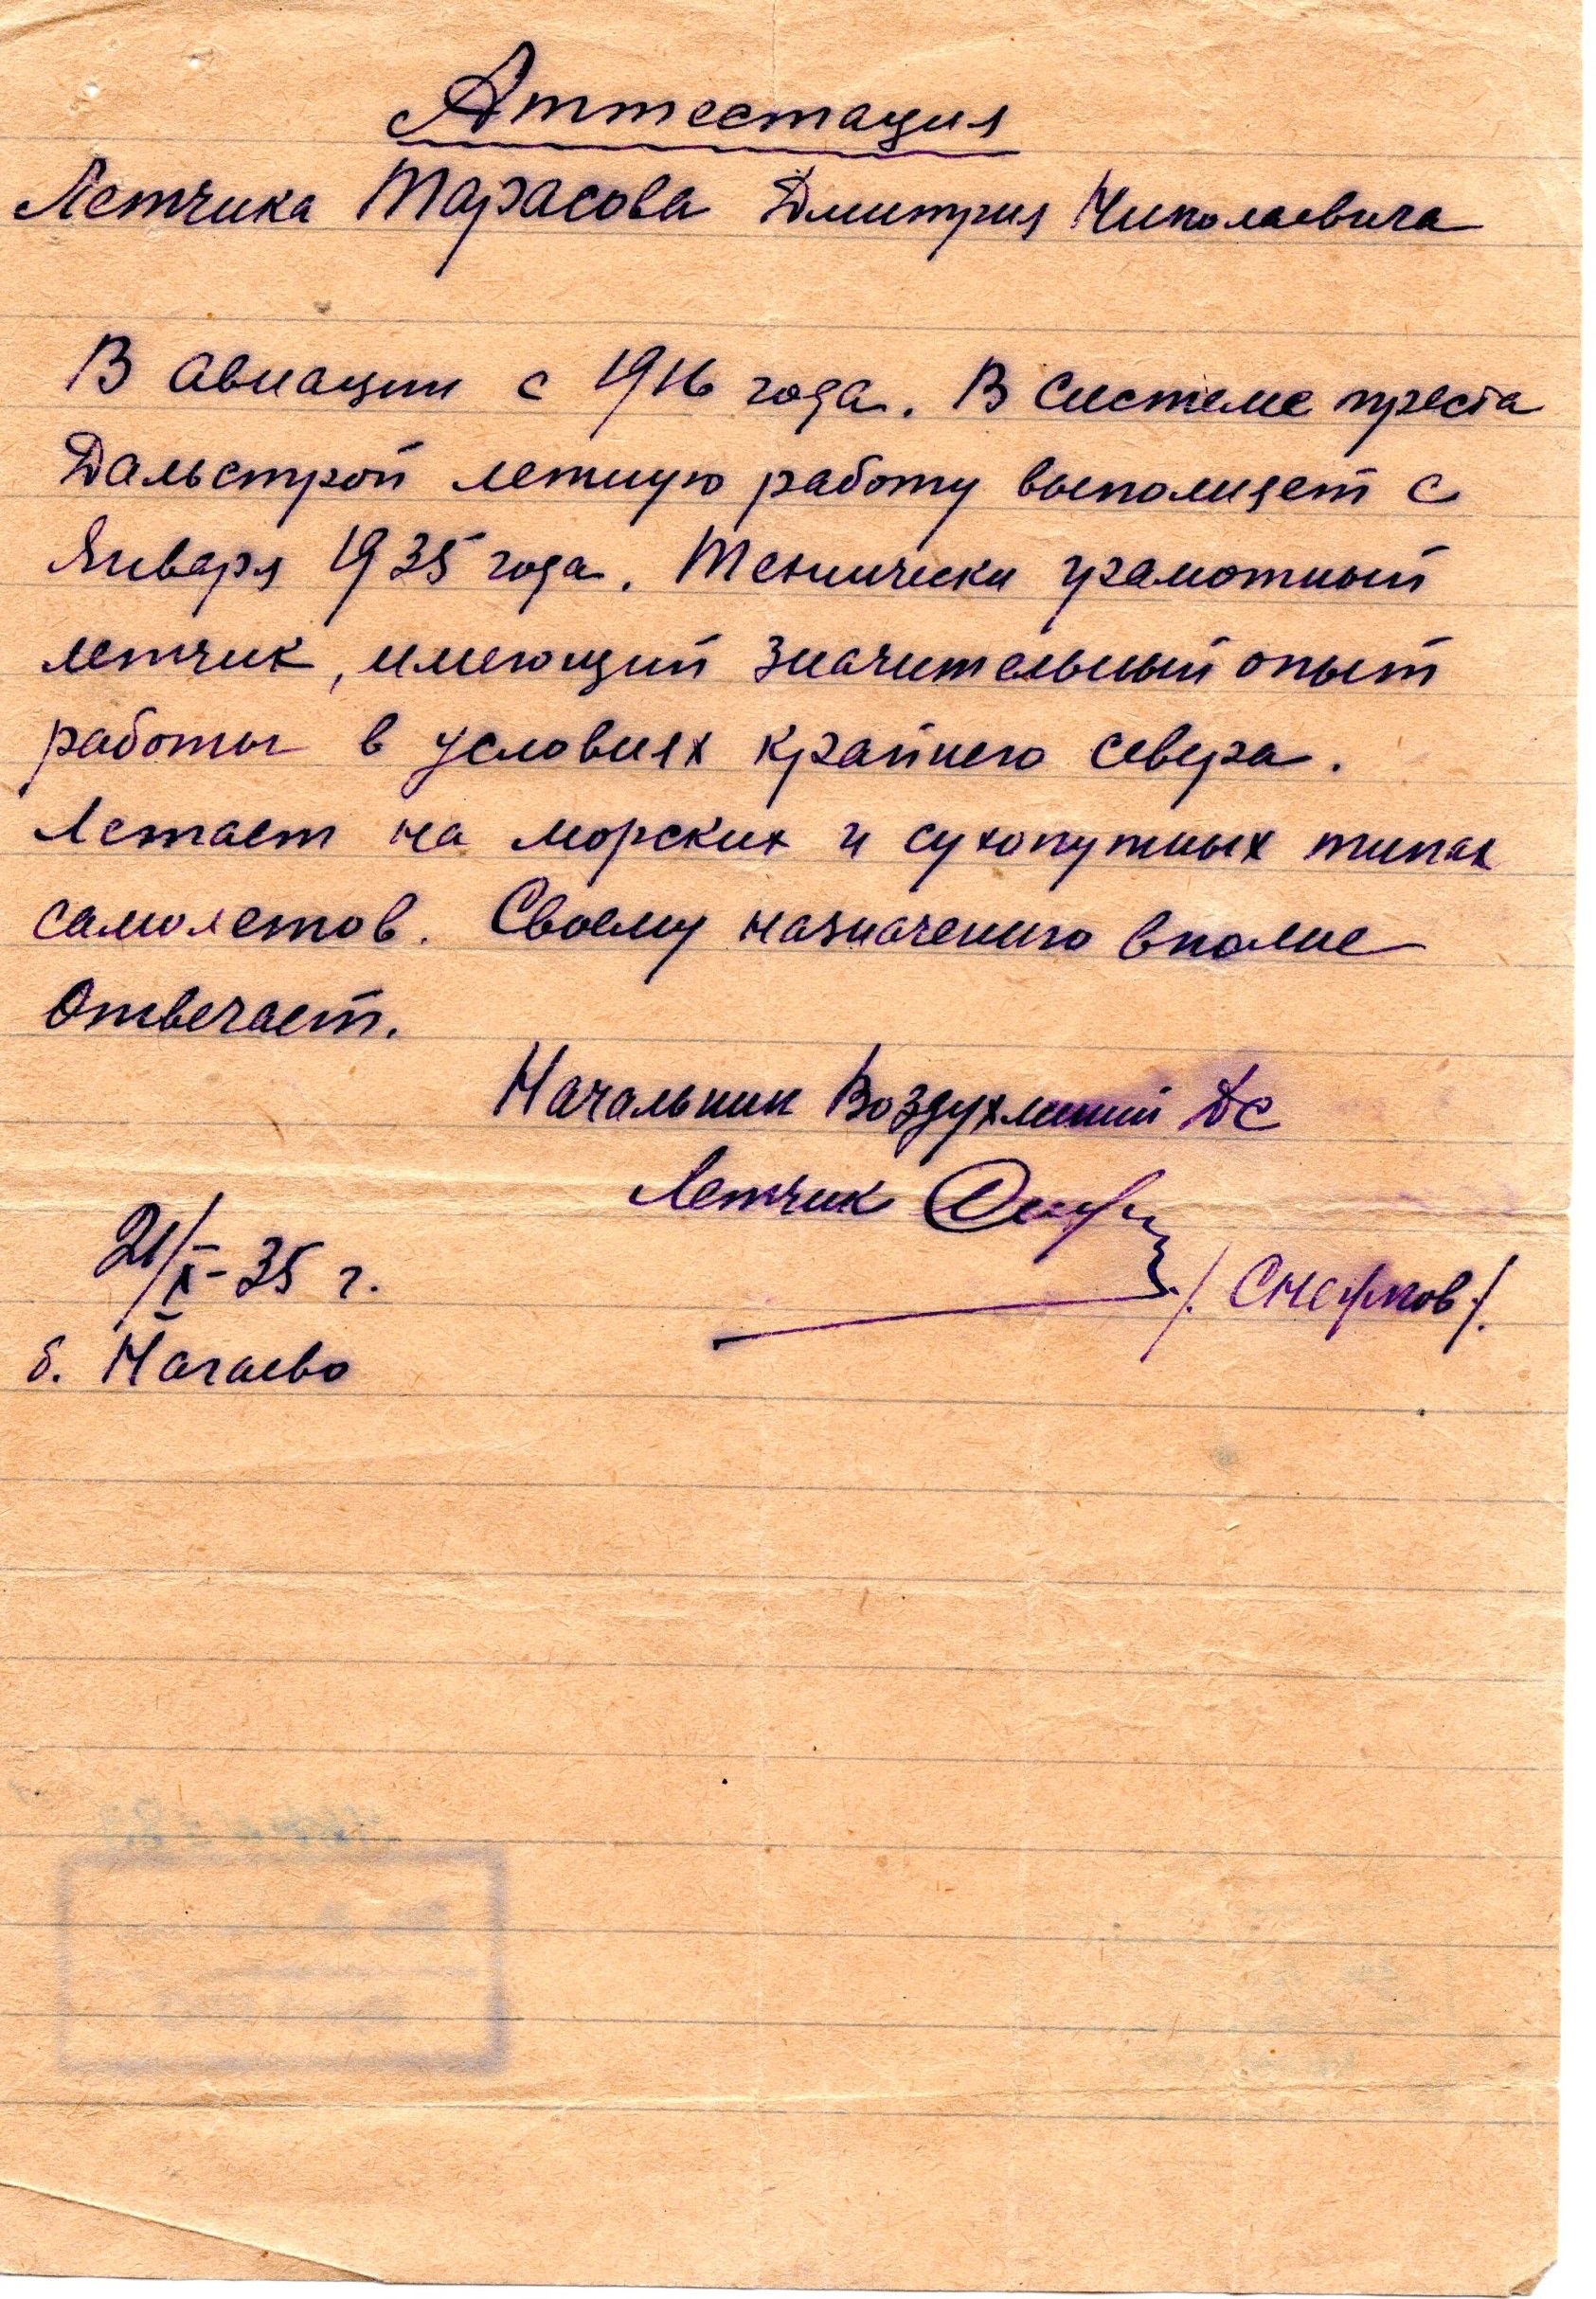 Аттестация
Летчика Тарасова Дмитрия Николаевича
В авиации с 1916 года. В системе треста
Дальстрой летную работу выполняет с
Января 1935 года. Технически грамотный
летчик, имеющий значительный опыт
работы в условиях крайнего севера.
Летает на морских и сухопутных типах
самолетов. Своему назначению вполне
Отвечает.
Начальник Воздухлиний ДС
Летчик
21/X-35 г.
/Снежков/.
б. Нагаево